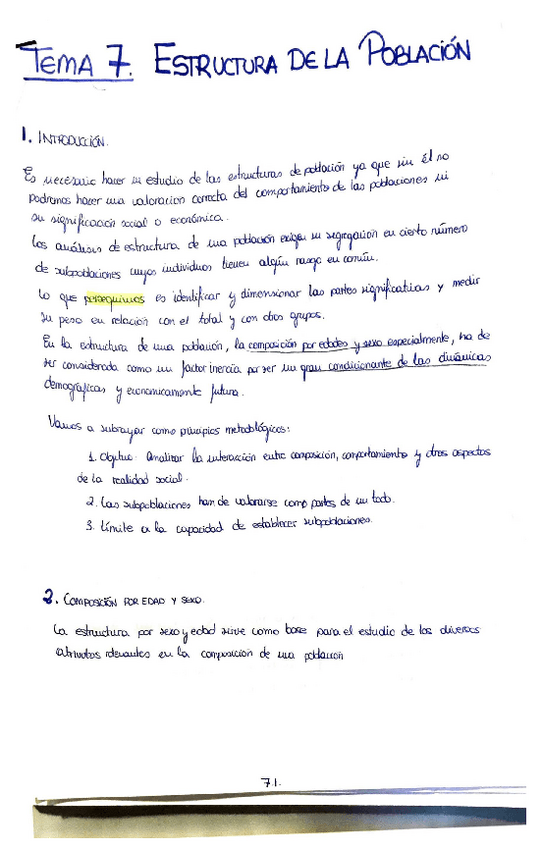 TEMA 7. ESTRUCTURA DE LA POBLACIÓN
1. INTRODUCCIÓN.
Es necesario hacer un estudio de las estructuras de población ya que sin él no
podremos hacer una valoracion correcta del comportamiento de las poblaciones ni
su significación social o económica.
Los análisis de estructura de una población exigen su segregación en cierto número
de subpoblaciones cuyos individuos tienen algún rasgo en común.
Lo que perseguimos es identificar y dimensionar las partes significativas y medir
su peso en relación con el total y con otros grupos.
En la estructura de una población, la composición por edades y sexo especialmente, ha de
ser considerada como un factor inercia por ser un gran condicionante de las dinámicas
demográficas y economicamente futura.
Vamos a subrayar como principios metodológicos:
1. Objetivo: Analizar la interacción entre composición, comportamiento y otros aspectos
de la realidad social.
2. Las subpoblaciones han de valorarse como partes de un todo.
3. Límite a la capacidad de establecer subpoblaciones.
2. COMPOSICIÓN POR EDAD Y SEXO.
La estructura por sexo y edad sirve como base para el estudio de los diversos
atributos relevantes en la composición de una población
7.1.